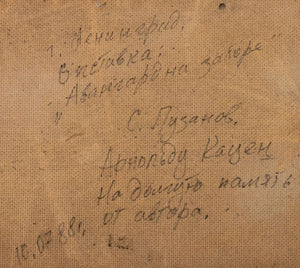 г. Ленинград.
Выставка:
"Авангард на заборе"
С. Пузанов.
Арнольду Кацен
На долгую память
от автора.
10.07.88г.